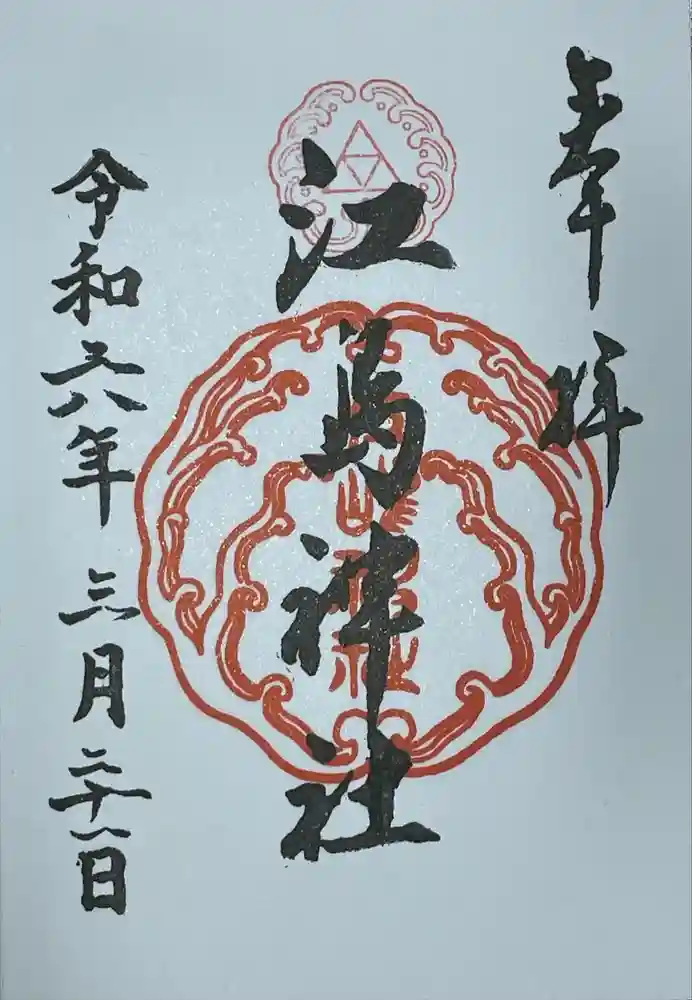 奉拝
江島神社
令和六年 三月二十八日